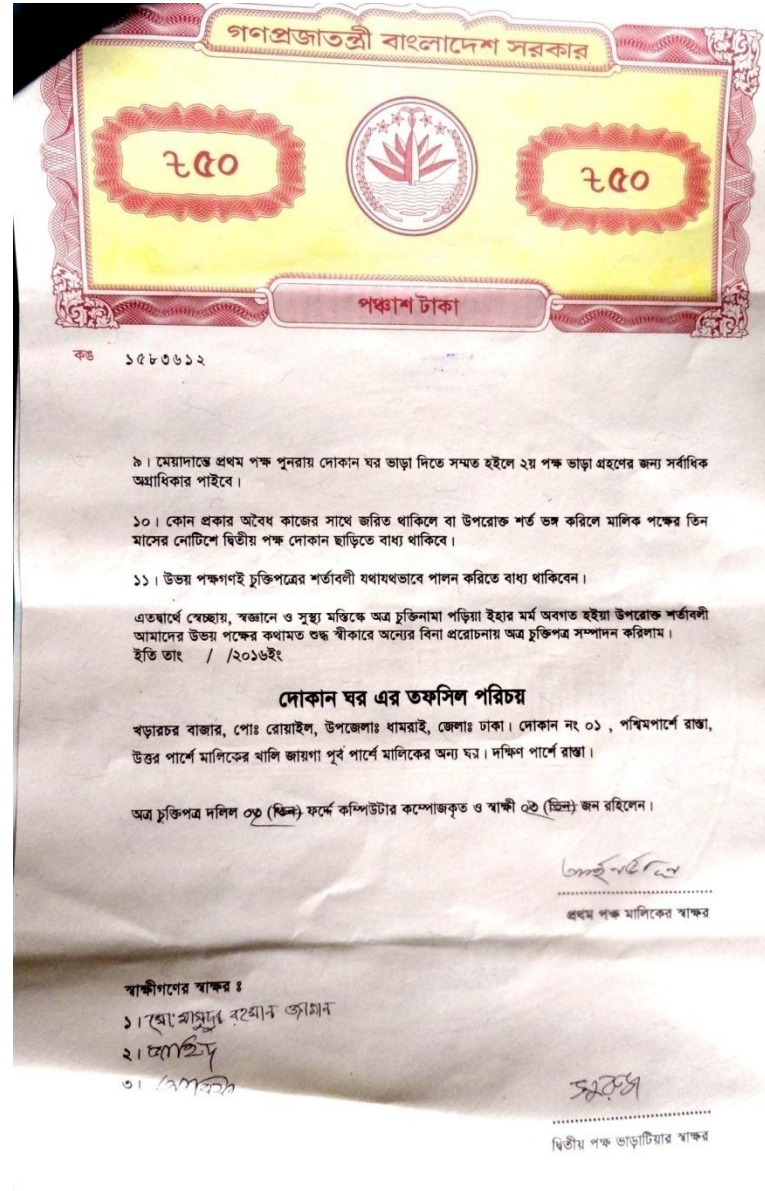 গণপ্রজাতন্ত্রী বাংলাদেশ সরকার
৳৫০ ৳৫০
পঞ্চাশ টাকা
কঙ ১৫৮৩৬১২
৯। মেয়াদান্তে প্রথম পক্ষ পুনরায় দোকান ঘর ভাড়া দিতে সম্মত হইলে ২য় পক্ষ ভাড়া গ্রহণের জন্য সর্বাধিক
অগ্রাধিকার পাইবে।
১০। কোন প্রকার অবৈধ কাজের সাথে জরিত থাকিলে বা উপরোক্ত শর্ত ভঙ্গ করিলে মালিক পক্ষের তিন
মাসের নোটিশে দ্বিতীয় পক্ষ দোকান ছাড়িতে বাধ্য থাকিবে।
১১। উভয় পক্ষগণই চুক্তিপত্রের শর্তাবলী যথাযথভাবে পালন করিতে বাধ্য থাকিবেন।
এতদ্বার্থে স্বেচ্ছায়, স্বজ্ঞানে ও সুস্থ্য মস্তিস্কে অত্র চুক্তিনামা পড়িয়া ইহার মর্ম অবগত হইয়া উপরোক্ত শর্তাবলী
আমাদের উভয় পক্ষের কথামত শুদ্ধ স্বীকারে অন্যের বিনা প্ররোচনায় অত্র চুক্তিপত্র সম্পাদন করিলাম।
ইতি তাং / /২০১৬ইং
দোকান ঘর এর তফসিল পরিচয়
খড়ারচর বাজার, পোঃ রোয়াইল, উপজেলাঃ ধামরাই, জেলাঃ ঢাকা। দোকান নং ০১ , পশ্চিমপার্শে রাস্তা,
উত্তর পার্শে মালিকের খালি জায়গা পূর্ব পার্শে মালিকের অন্য ঘর। দক্ষিণ পার্শে রাস্তা।
অত্র চুক্তিপত্র দলিল ০৩ (তিন) ফর্দ্দে কম্পিউটার কম্পোজকৃত ও স্বাক্ষী ০৩ (তিন) জন রহিলেন।
প্রথম পক্ষ মালিকের স্বাক্ষর
স্বাক্ষীগণের স্বাক্ষর ঃ
১। মোঃ মাসুদুর রহমান জামান
২।
৩।
দ্বিতীয় পক্ষ ভাড়াটিয়ার স্বাক্ষর